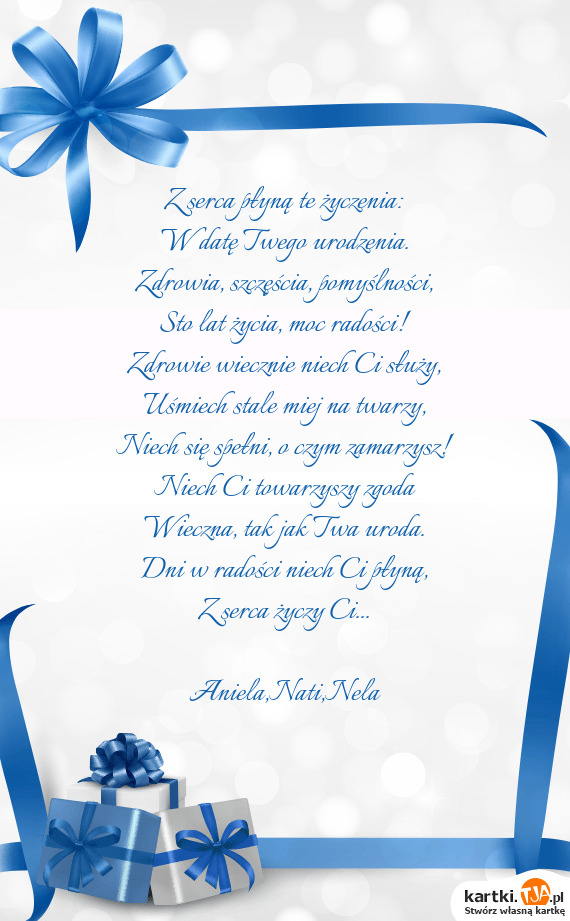 Z serca płyną te życzenia:
W datę Twego urodzenia.
Zdrowia, szczęścia, pomyślności,
Sto lat życia, moc radości!
Zdrowie wiecznie niech Ci służy,
Uśmiech stale miej na twarzy,
Niech się spełni, o czym zamarzysz!
Niech Ci towarzyszy zgoda
Wieczna, tak jak Twa uroda.
Dni w radości niech Ci płyną,
Z serca życzy Ci...
Aniela,Nati,Nela
kartki.TJA.pl
Stwórz własną kartkę